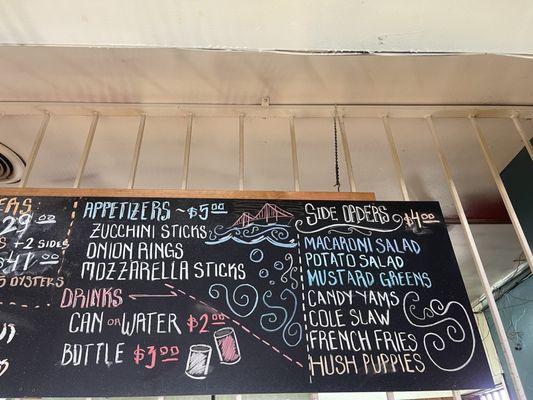 29.00
+ 2 SIDES
OYSTERS
APPETIZERS ~ $5.00
ZUCCHINI STICKS
ONION RINGS
MOZZARELLA STICKS
DRINKS
CAN OR WATER $2.00
BOTTLE $3.00
SIDE ORDERS $4.00
MACARONI SALAD
POTATO SALAD
MUSTARD GREENS
CANDY YAMS
COLE SLAW
FRENCH FRIES
HUSH PUPPIES